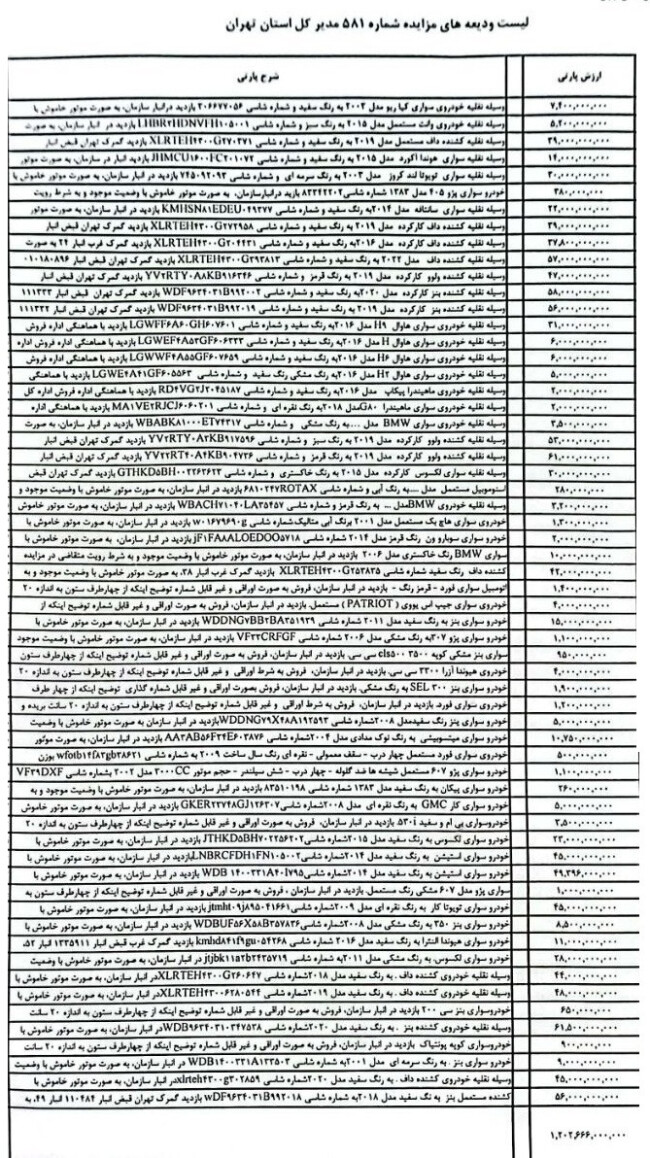 لیست ودیعه های مزایده شماره ۵۸۱ مدیر کل استان تهران
شرح پارتی ارزش پارتی
وسیله نقلیه خودروی سواری کیا ریو مدل ۲۰۰۳ به رنگ سفید و شماره شاسی ۳۰۶۶۷۷۰۵۶ بازدید درانبار سازمان، به صورت موتور خاموش با ۷,۴۰۰,۰۰۰,۰۰۰
وسیله نقلیه خودروی وانت مستعمل مدل ۲۰۱۵ به رنگ سبز و شماره شاسی بازدید در انبار سازمان، به صورت ۵,۲۰۰,۰۰۰,۰۰۰
وسیله نقلیه کشنده داف مستعمل مدل ۲۰۱۹ به رنگ سفید و شماره شاسی XLRTEH۴۳۰۰G۲۷۰۳۷۱ بازدید گمرک تهران قبض انبار ۳۹,۰۰۰,۰۰۰,۰۰۰
وسیله نقلیه سواری هوندا آکورد مدل ۲۰۱۵ به رنگ سفید و شماره شاسی JHMCU۱۶۰۰FC۲۰۱۰۷۲ بازدید انبار در سازمان، به صورت موتور ۱۴,۰۰۰,۰۰۰,۰۰۰
وسیله نقلیه سواری تویوتا لند کروز مدل ۲۰۰۳ به رنگ سرمه ای و شماره شاسی ۷۴۵۰۹۲۰۹۳ بازدید در انبار سازمان، به صورت موتور خاموش با ۳۰,۰۰۰,۰۰۰,۰۰۰
خودرو سواری پژو ۴۰۵ مدل ۱۳۸۳ شماره شاسی۸۳۳۴۲۲۰۲ بازید درانبارسازمان، به صورت موتور خاموش با وضعیت موجود و به شرط رویت ۳۸۰,۰۰۰,۰۰۰
وسیله نقلیه سواری سانتافه مدل ۲۰۱۴به رنگ سفید و شماره شاسی KMHSN۸۱EDEU۰۴۹۳۷۷ بازدید در انبار سازمان، به صورت موتور ۲۲,۰۰۰,۰۰۰,۰۰۰
وسیله نقلیه کشنده داف کارکرده مدل ۲۰۱۹ به رنگ سفید و شماره شاسی XLRTEH۴۳۰۰G۲۷۲۹۵۸ بازدید گمرک تهران قبض انبار ۳۹,۰۰۰,۰۰۰,۰۰۰
وسیله نقلیه کشنده داف کارکرده مدل ۲۰۱۶به رنگ سفید و شماره شاسی XLRTEH۴۳۰۰G۲۰۴۴۳۱ بازدید گمرک غرب انبار ۲۴ به صورت ۳۷,۸۰۰,۰۰۰,۰۰۰
وسیله نقلیه کشنده داف مدل ۲۰۲۲ به رنگ سفید و شماره شاسی XLRTEH۴۳۰۰G۳۹۳۸۱۳ بازدید گمرک تهران قبض انبار ۰۱۰۱۸۰۸۹۶ ۵۷,۰۰۰,۰۰۰,۰۰۰
وسیله نقلیه کشنده ولوو کارکرده مدل ۲۰۱۹ به رنگ قرمز و شماره شاسی YV۲RTY۰A۸KB۹۱۶۳۴۶ بازدید گمرک تهران قبض انبار ۴۷,۰۰۰,۰۰۰,۰۰۰
وسیله نقلیه کشنده بنز کارکرده مدل ۲۰۲۰به رنگ سفید و شماره شاسی WDF۹۶۳۴۰۳۱B۹۹۲۰۰۲ بازدید گمرک تهران قبض انبار ۱۱۱۳۳۳ ۵۸,۰۰۰,۰۰۰,۰۰۰
وسیله نقلیه کشنده بنز کارکرده مدل ۲۰۱۹ به رنگ سفید و شماره شاسی WDF۹۶۳۴۰۳۱B۹۹۲۰۱۹ بازدید گمرک تهران قبض انبار ۱۱۱۳۳۲ ۵۶,۰۰۰,۰۰۰,۰۰۰
وسیله نقلیه خودروی سواری هاوال H۹ مدل ۲۰۱۶به رنگ سفید و شماره شاسی LGWFF۶A۶۰GH۶۰۷۶۰۱ بازدید با هماهنگی اداره فروش ۳۱,۰۰۰,۰۰۰,۰۰۰
وسیله نقلیه خودروی سواری هاوال H مدل ۲۰۱۶به رنگ سفید و شماره شاسی LGWEF۴A۵۳GF۶۰۶۳۲۳ بازدید با هماهنگی اداره فروش اداره ۶,۰۰۰,۰۰۰,۰۰۰
وسیله نقلیه خودروی سواری هاوال H۶ مدل ۲۰۱۶به رنگ سفید و شماره شاسی LGWWF۴A۵۵GF۶۰۷۶۵۹ بازدید با هماهنگی اداره فروش ۶,۰۰۰,۰۰۰,۰۰۰
وسیله نقلیه خودروی سواری هاوال H۲ مدل ۲۰۱۶به رنگ مشکی رنگ سفید و شماره شاسی LGWE۴A۴۱GF۶۰۵۵۶۳ بازدید با هماهنگی ۵,۰۰۰,۰۰۰,۰۰۰
وسیله نقلیه خودروی ماهیندرا پیکاپ مدل ۲۰۱۶به رنگ سفید و شماره شاسی RD۴VG۲J۲۰۴۵۱۸۷ بازدید با هماهنگی اداره فروش اداره کل ۲,۰۰۰,۰۰۰,۰۰۰
وسیله نقلیه خودروی سواری ماهیندرا G۸۰مدل ۲۰۱۸به رنگ نقره ای و شماره شاسی MA۱VE۲RJCJ۶۰۶۰۲۰۱ بازدید با هماهنگی اداره ۲,۰۰۰,۰۰۰,۰۰۰
وسیله نقلیه خودروی سواری BMW مدل ...به رنگ مشکی و شماره شاسی WBABK۸۱۰۰۰ET۷۴۳۱۷ بازدید در انبار سازمان، به صورت ۳,۵۰۰,۰۰۰,۰۰۰
وسیله نقلیه کشنده ولوو کارکرده مدل ۲۰۱۹ به رنگ سبز و شماره شاسی YV۲RTY۰A۲KB۹۱۷۵۹۶ بازدید گمرک تهران قبض انبار ۵۳,۰۰۰,۰۰۰,۰۰۰
وسیله نقلیه کشنده ولوو کارکرده مدل ۲۰۱۹ به رنگ قرمز و شماره شاسی YV۲RT۴۰A۴KB۹۰۴۷۳۶ بازدید گمرک تهران قبض انبار ۶۱,۰۰۰,۰۰۰,۰۰۰
وسیله نقلیه سواری لکسوس کارکرده مدل ۲۰۱۵ به رنگ خاکستری و شماره شاسی GTHKD۵BH۰۰۲۲۶۳۶۲۳ بازدید گمرک تهران قبض ۳۰,۰۰۰,۰۰۰,۰۰۰
اسنوموبیل مستعمل مدل ....به رنگ آبی و شماره شاسی ۶۸۱۰۲۴۷ROTAX بازدید در انبار سازمان، به صورت موتور خاموش با وضعیت موجود و ۲۸۰,۰۰۰,۰۰۰
وسیله نقلیه خودروی BMWمدل ... به رنگ قرمز و شماره شاسی WBACH۷۱۰۴۰LA۳۵۴۵۷ بازدید در انبار سازمان، به صورت موتور خاموش ۳,۲۰۰,۰۰۰,۰۰۰
خودروی سواری هاچ بک مستعمل مدل ۲۰۰۱ برنگ آبی متالیک شماره شاسی w۰۱۶۷۹۶۹۰g بازدید در انبار سازمان، به صورت موتور خاموش با ۱,۳۰۰,۰۰۰,۰۰۰
خودرو سواری سوبارو ون رنگ قرمز مدل ۲۰۱۴ شماره شاسی jF۱FA۸ALOEDOO۵۷۱۸ بازدید در انبار سازمان، به صورت موتور خاموش با ۲,۰۰۰,۰۰۰,۰۰۰
سواری BMW رنگ خاکستری مدل ۲۰۰۶ بازدید در انبار سازمان، به صورت موتور خاموش با وضعیت موجود و به شرط رویت متقاضی در مزایده ۱۰,۰۰۰,۰۰۰,۰۰۰
کشنده داف رنگ سفید شماره شاسی XLRTEH۴۳۰۰G۲۵۲۸۳۵ بازدید گمرک غرب انبار ۳۸، به صورت موتور خاموش با وضعیت موجود و به ۴۲,۰۰۰,۰۰۰,۰۰۰
اتومبیل سواری فورد - قرمز رنگ - بازدید در انبار سازمان، فروش به صورت اوراقی و غیر قابل شماره توضیح اینکه از چهارطرف ستون به اندازه ۲۰ ۱,۴۰۰,۰۰۰,۰۰۰
خودروی سواری جیپ اس یووی ( PATRIOT ) مستعمل. بازدید در انبار سازمان، فروش به صورت اوراقی و غیر قابل شماره توضیح اینکه از ۴,۰۰۰,۰۰۰,۰۰۰
خودرو سواری بنز به رنگ سفید مدل ۲۰۱۱ شماره شاسی WDDNG۷BB۲BA۳۵۱۹۳۹ بازدید در انبار سازمان، به صورت موتور خاموش با ۱۵,۰۰۰,۰۰۰,۰۰۰
خودرو سواری پژو ۳۰۷به رنگ مشکی مدل ۲۰۰۶ شماره شاسی VF۳۳CRFGF بازدید در انبار سازمان، به صورت موتور خاموش با وضعیت موجود ۱,۱۰۰,۰۰۰,۰۰۰
سواری بنز مشکی کوپه cls۵۰۰ ۳۵۰۰ سی سی. بازدید در انبار سازمان، فروش به صورت اوراقی و غیر قابل شماره توضیح اینکه از چهارطرف ستون ۹۵۰,۰۰۰,۰۰۰
خودروی هیوندا آزرا ۳۳۰۰ سی سی. بازدید در انبار سازمان، فروش به شرط اوراقی و غیر قابل شماره توضیح اینکه از چهارطرف ستون به اندازه ۲۰ ۴,۰۰۰,۰۰۰,۰۰۰
خودرو سواری بنز ۳۰۰ SEL به رنگ مشکی. بازدید در انبار سازمان، فروش بصورت اوراقی و غیر قابل شماره گذاری توضیح اینکه از چهار طرف ۱,۹۰۰,۰۰۰,۰۰۰
خودروی سواری فورد. بازدید در انبار سازمان، فروش به شرط اوراقی و غیر قابل شماره توضیح اینکه از چهارطرف ستون به اندازه ۲۰ سانت بریده و ۱,۲۰۰,۰۰۰,۰۰۰
خودرو سواری بنز رنگ سفیدمدل ۲۰۰۸شماره شاسی WDDNG۷۹X۴۸A۱۹۲۵۹۳بازدید در انبار سازمان به صورت موتور خاموش با وضعیت ۵,۰۰۰,۰۰۰,۰۰۰
خودرو سواری میتسوبیشی به رنگ نوک مدادی مدل ۲۰۰۴شماره شاسی AA۳AB۵۶F۳۴E۶۰۳۸۷۶ بازدید در انبار سازمان، به صورت موتور ۱۰,۷۵۰,۰۰۰,۰۰۰
خودروی سواری فورد مستعمل چهار درب - سقف معمولی - نقره ای رنگ سال ساخت ۲۰۰۹ به شماره شاسی wfotb۱۴f۸۳gb۳۸۶۲۱ بوزن ۵۰۰,۰۰۰,۰۰۰
خودرو سواری پژو ۶۰۷ مستعمل شیشه ها ضد گلوله - چهار درب - شش سیلندر - حجم موتور ۳۰۰۰CC مدل ۲۰۰۲ بشماره شاسی VF۳۹DXF ۱,۱۰۰,۰۰۰,۰۰۰
خودرو سواری پیکان به رنگ سفید مدل ۱۳۸۳ شماره شاسی ۸۳۵۱۰۱۹۸ بازدید در انبار سازمان، به صورت موتور خاموش با وضعیت موجود و به ۲۶۰,۰۰۰,۰۰۰
خودرو سواری کار GMC به رنگ نقره ای مدل ۲۰۰۸شماره شاسیGKER۲۲۷۴۸GJ۱۲۶۳۰۷ بازدید در انبار سازمان، به صورت موتور خاموش ۵,۰۰۰,۰۰۰,۰۰۰
خودروسواری بی ام و سفید ۵۳۰i. بازدید در انبار سازمان، فروش به صورت اوراقی و غیر قابل شماره توضیح اینکه از چهارطرف ستون به اندازه ۲۰ ۳,۵۰۰,۰۰۰,۰۰۰
خودرو سواری لکسوس به رنگ سفید مدل ۲۰۱۵شماره شاسیJTHKD۵BH۷۰۲۲۵۶۲۰۲ بازدید در انبار سازمان، به صورت موتور خاموش با ۲۳,۰۰۰,۰۰۰,۰۰۰
خودرو سواری استیشن به رنگ سفید مدل ۲۰۱۴شماره شاسیLNBRCFDH۱FN۱۰۵۰۰۲بازدید در انبار سازمان، به صورت موتور خاموش با ۴۵,۰۰۰,۰۰۰,۰۰۰
خودرو سواری استیشن به رنگ سفید مدل ۲۰۱۴شماره شاسی WDB ۱۴۰۰۳۳۱A۴۰۱۷۹۵ بازدید در انبار سازمان، به صورت موتور خاموش با ۴۹,۳۹۶,۰۰۰,۰۰۰
سواری پژو مدل ۶۰۷ مشکی رنگ مستعمل. بازدید در انبار سازمان ، فروش به صورت اوراقی و غیر قابل شماره توضیح اینکه از چهارطرف ستون به ۱,۰۰۰,۰۰۰,۰۰۰
خودرو سواری تویوتا کار به رنگ نقره ای مدل ۲۰۰۹شماره شاسیjtmht۰۹j۸۹۵۰۴۱۶۶۱ بازدید در انبار سازمان، به صورت موتور خاموش با ۴۵,۰۰۰,۰۰۰,۰۰۰
خودرو سواری بنز ۳۵۰ به رنگ مشکی مدل ۲۰۰۸شماره شاسیWDBUF۵۶X۵۸B۳۵۷۸۳۶ بازدید در انبار سازمان، به صورت موتور خاموش با ۸,۵۰۰,۰۰۰,۰۰۰
خودرو سواری هیوندا النترا به رنگ سفید مدل ۲۰۱۶ شماره شاسی kmhd۸۴۱f۹gu۰۵۴۲۶۸ بازدید گمرک غرب قبض انبار ۱۳۳۵۹۱۱ انبار ۵۲، ۱۱,۰۰۰,۰۰۰,۰۰۰
خودرو سواری لکسوس. به رنگ مشکی مدل ۲۰۱۱به شماره شاسی jtjbk۱۱a۵۲b۲۴۲۵۷۱۹ در انبار سازمان، به صورت موتور خاموش با وضعیت ۲۸,۰۰۰,۰۰۰,۰۰۰
وسیله نقلیه خودروی کشنده داف. به رنگ سفید مدل ۲۰۱۸شماره شاسیXLRTEH۴۳۰۰G۲۶۰۶۴۷در انبار سازمان، به صورت موتور خاموش با ۴۴,۰۰۰,۰۰۰,۰۰۰
وسیله نقلیه خودروی کشنده داف. به رنگ سفید مدل ۲۰۱۹شماره شاسیXLRTEH۴۳۰۰G۲۸۰۵۴۴در انبار سازمان، به صورت موتور خاموش با ۴۸,۰۰۰,۰۰۰,۰۰۰
خودروسواری بنز سی ۲۰۰ بازدید در انبار سازمان، فروش به صورت اوراقی و غیر قابل شماره توضیح اینکه از چهارطرف ستون به اندازه ۲۰ سانت ۶۵۰,۰۰۰,۰۰۰
وسیله نقلیه خودروی کشنده بنز . به رنگ سفید مدل ۲۰۲۰شماره شاسیWDB۹۶۳۴۰۳۱۰۳۴۷۵۳۸در انبار سازمان، به صورت موتور خاموش با ۶۱,۵۰۰,۰۰۰,۰۰۰
خودروسواری کوپه پونتیاک بازدید در انبار سازمان، فروش به صورت اوراقی و غیر قابل شماره توضیح اینکه از چهارطرف ستون به اندازه ۲۰ سانت ۹۰۰,۰۰۰,۰۰۰
خودرو سواری بنز . به رنگ سرمه ای مدل ۲۰۰۱به شماره شاسی WDB۱۴۰۰۳۳۱A۱۳۳۵۰۳ در انبار سازمان، به صورت موتور خاموش با وضعیت ۹,۰۰۰,۰۰۰,۰۰۰
وسیله نقلیه خودروی کشنده داف. به رنگ سفید مدل ۲۰۲۰شماره شاسیxlrteh۴۳۰۰g۳۰۲۸۵۹در انبار سازمان، به صورت موتور خاموش با ۴۵,۰۰۰,۰۰۰,۰۰۰
کشنده مستعمل بنز به نگ سفید مدل ۲۰۱۸به شماره شاسی wDF۹۶۳۴۰۳۱B۹۹۲۰۱۸ بازدید گمرک تهران قبض انبار ۱۱۰۴۸۴ انبار ۴۹، به ۵۶,۰۰۰,۰۰۰,۰۰۰
۱,۲۰۲,۶۶۶,۰۰۰,۰۰۰